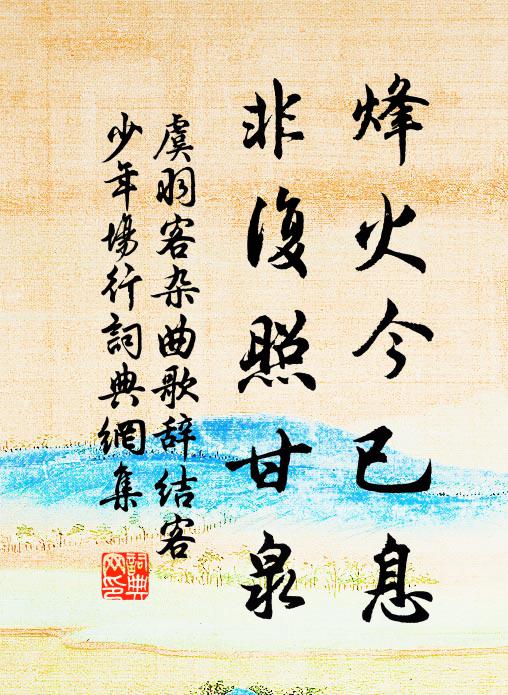 烽火今已息
非復照甘泉
虞羽客杂曲歌辞结客
少年場行詞典網集
詞典
网印